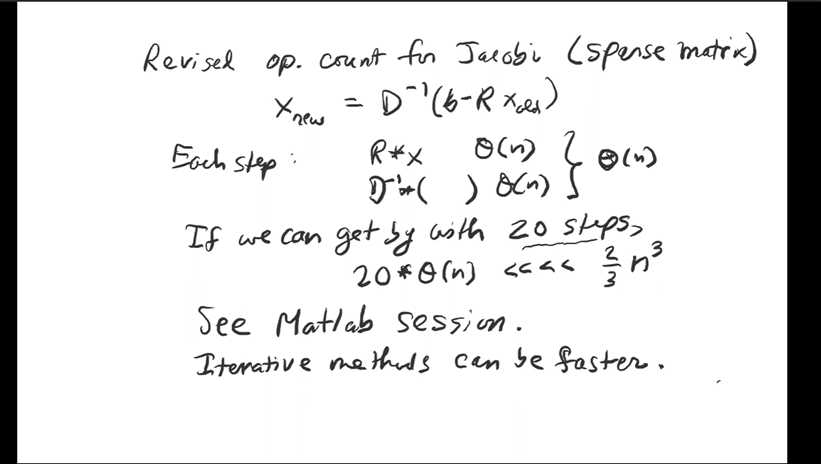 Revised op. count for Jacobi (sparse matrix)
x_new = D⁻¹(b-R x_old)
Each step: R*x θ(n) } θ(n)
D⁻¹*( ) θ(n)
If we can get by with 20 steps,
20*θ(n) <<<< 2/3 n³
See Matlab session.
Iterative methods can be faster.